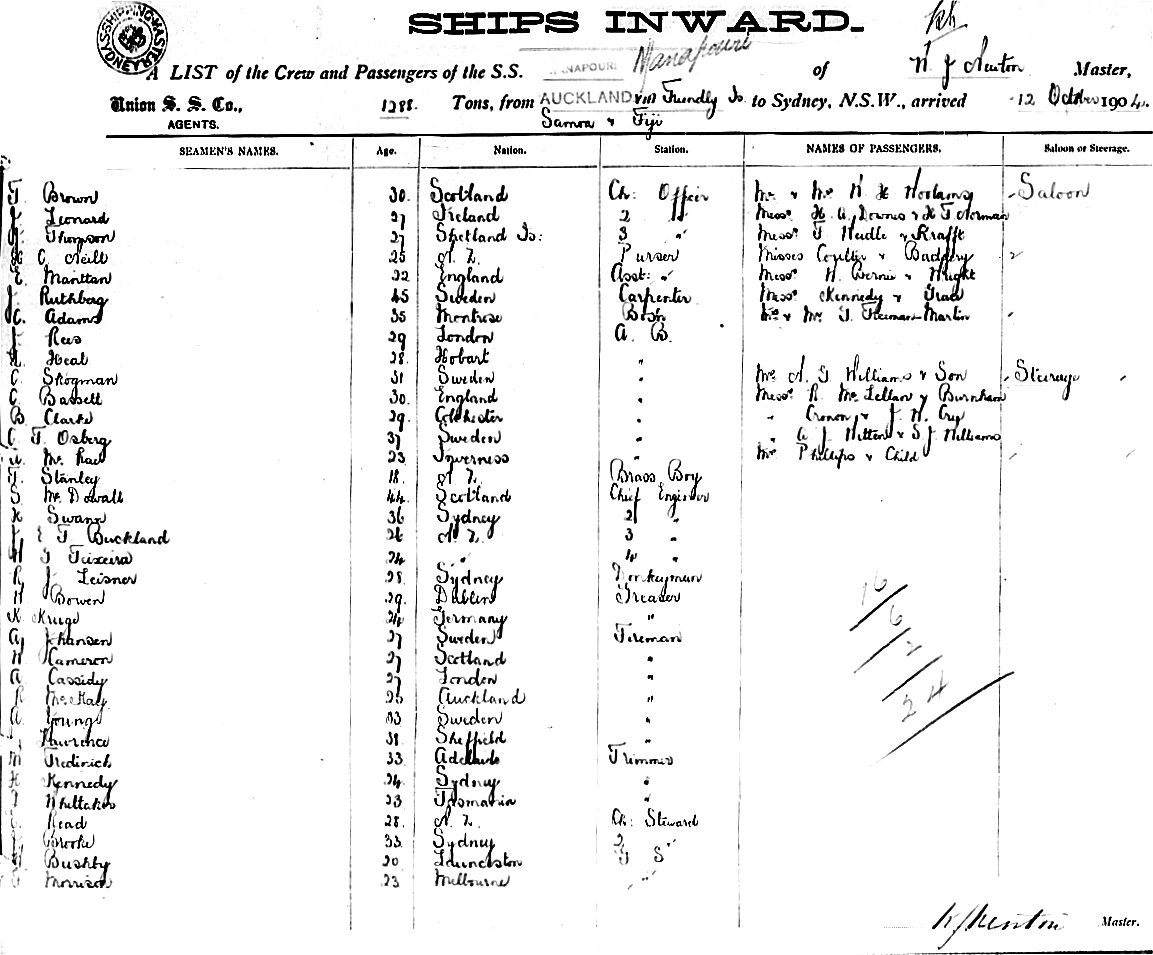 SYDNEY SHIPPING MASTER
SHIPS INWARD.
A LIST of the Crew and Passengers of the S.S. MANAPOURI Manapouri of W. J. Newton Master,
Union S. S. Co., 1288. Tons, from AUCKLAND via Friendly Is. to Sydney, N.S.W., arrived 12 October 1904.
AGENTS. Samoa & Fiji
SEAMEN'S NAMES. Age. Nation. Station. NAMES OF PASSENGERS. Saloon or Steerage.
T. Brown 30. Scotland Ch: Officer Mr & Mrs W H Saloon
Leonard 27 Ireland 2 " Messrs H. A. Downes & H T Norman
Thompson 27 Shetland Is: 3 " Messrs T. Neidle & Krafft
C. Neill 25 N. Z. Purser Misses Coulter & Badgery "
E. Manttan 22 England Asst: " Messrs W. Bernie & Wright
J. Ruthberg 45 Sweden Carpenter Messrs Kennedy &
C. Adams 35 Montrose Bosn Mr & Mrs G. Freeman-Martin "
Rees 29 London A. B.
Heal 28. Hobart "
C. Skogman 31 Sweden " Mrs A. G Williams & Son Steerage
C. Bassett 30. England " Messrs R. McLellan & Burnham
B. Clarke 29. Colchester " " Cronon & J. W. Cry
C. T. Osberg 37 Sweden " " A. J. Witton & S. J Williams
Mc Rae 23 Inverness " Mrs Phillips & Child "
T. Stanley 18. N. Z. Brass Boy
S McDowall 44. Scotland Chief Engineer
H Swann 36 Sydney 2 "
E T. Buckland 26 N. Z. 3 "
H G Teixeira 24 " " 4 "
R J. Leisner 28. Sydney Donkeyman
H Bowen 29. Dublin Greaser
K. Kruge 24 Germany "
A Johansen 27 Sweden Fireman
W Cameron 27 Scotland "
A Cassidy 27 London "
R McKay 25 Auckland "
A. Young 33 Sweden "
Lawrence 38 Sheffield "
M Fredrick 33 Adelaide Trimmer
H Kennedy 24. Sydney "
Whittaker 23 Tasmania "
Read 28. N. Z. Ch: Steward
Brooke 33. Sydney 2 "
Bushby 20 Launceston F S
Morrison 23 Melbourne " "
16
6
2
24
W J Newton Master.